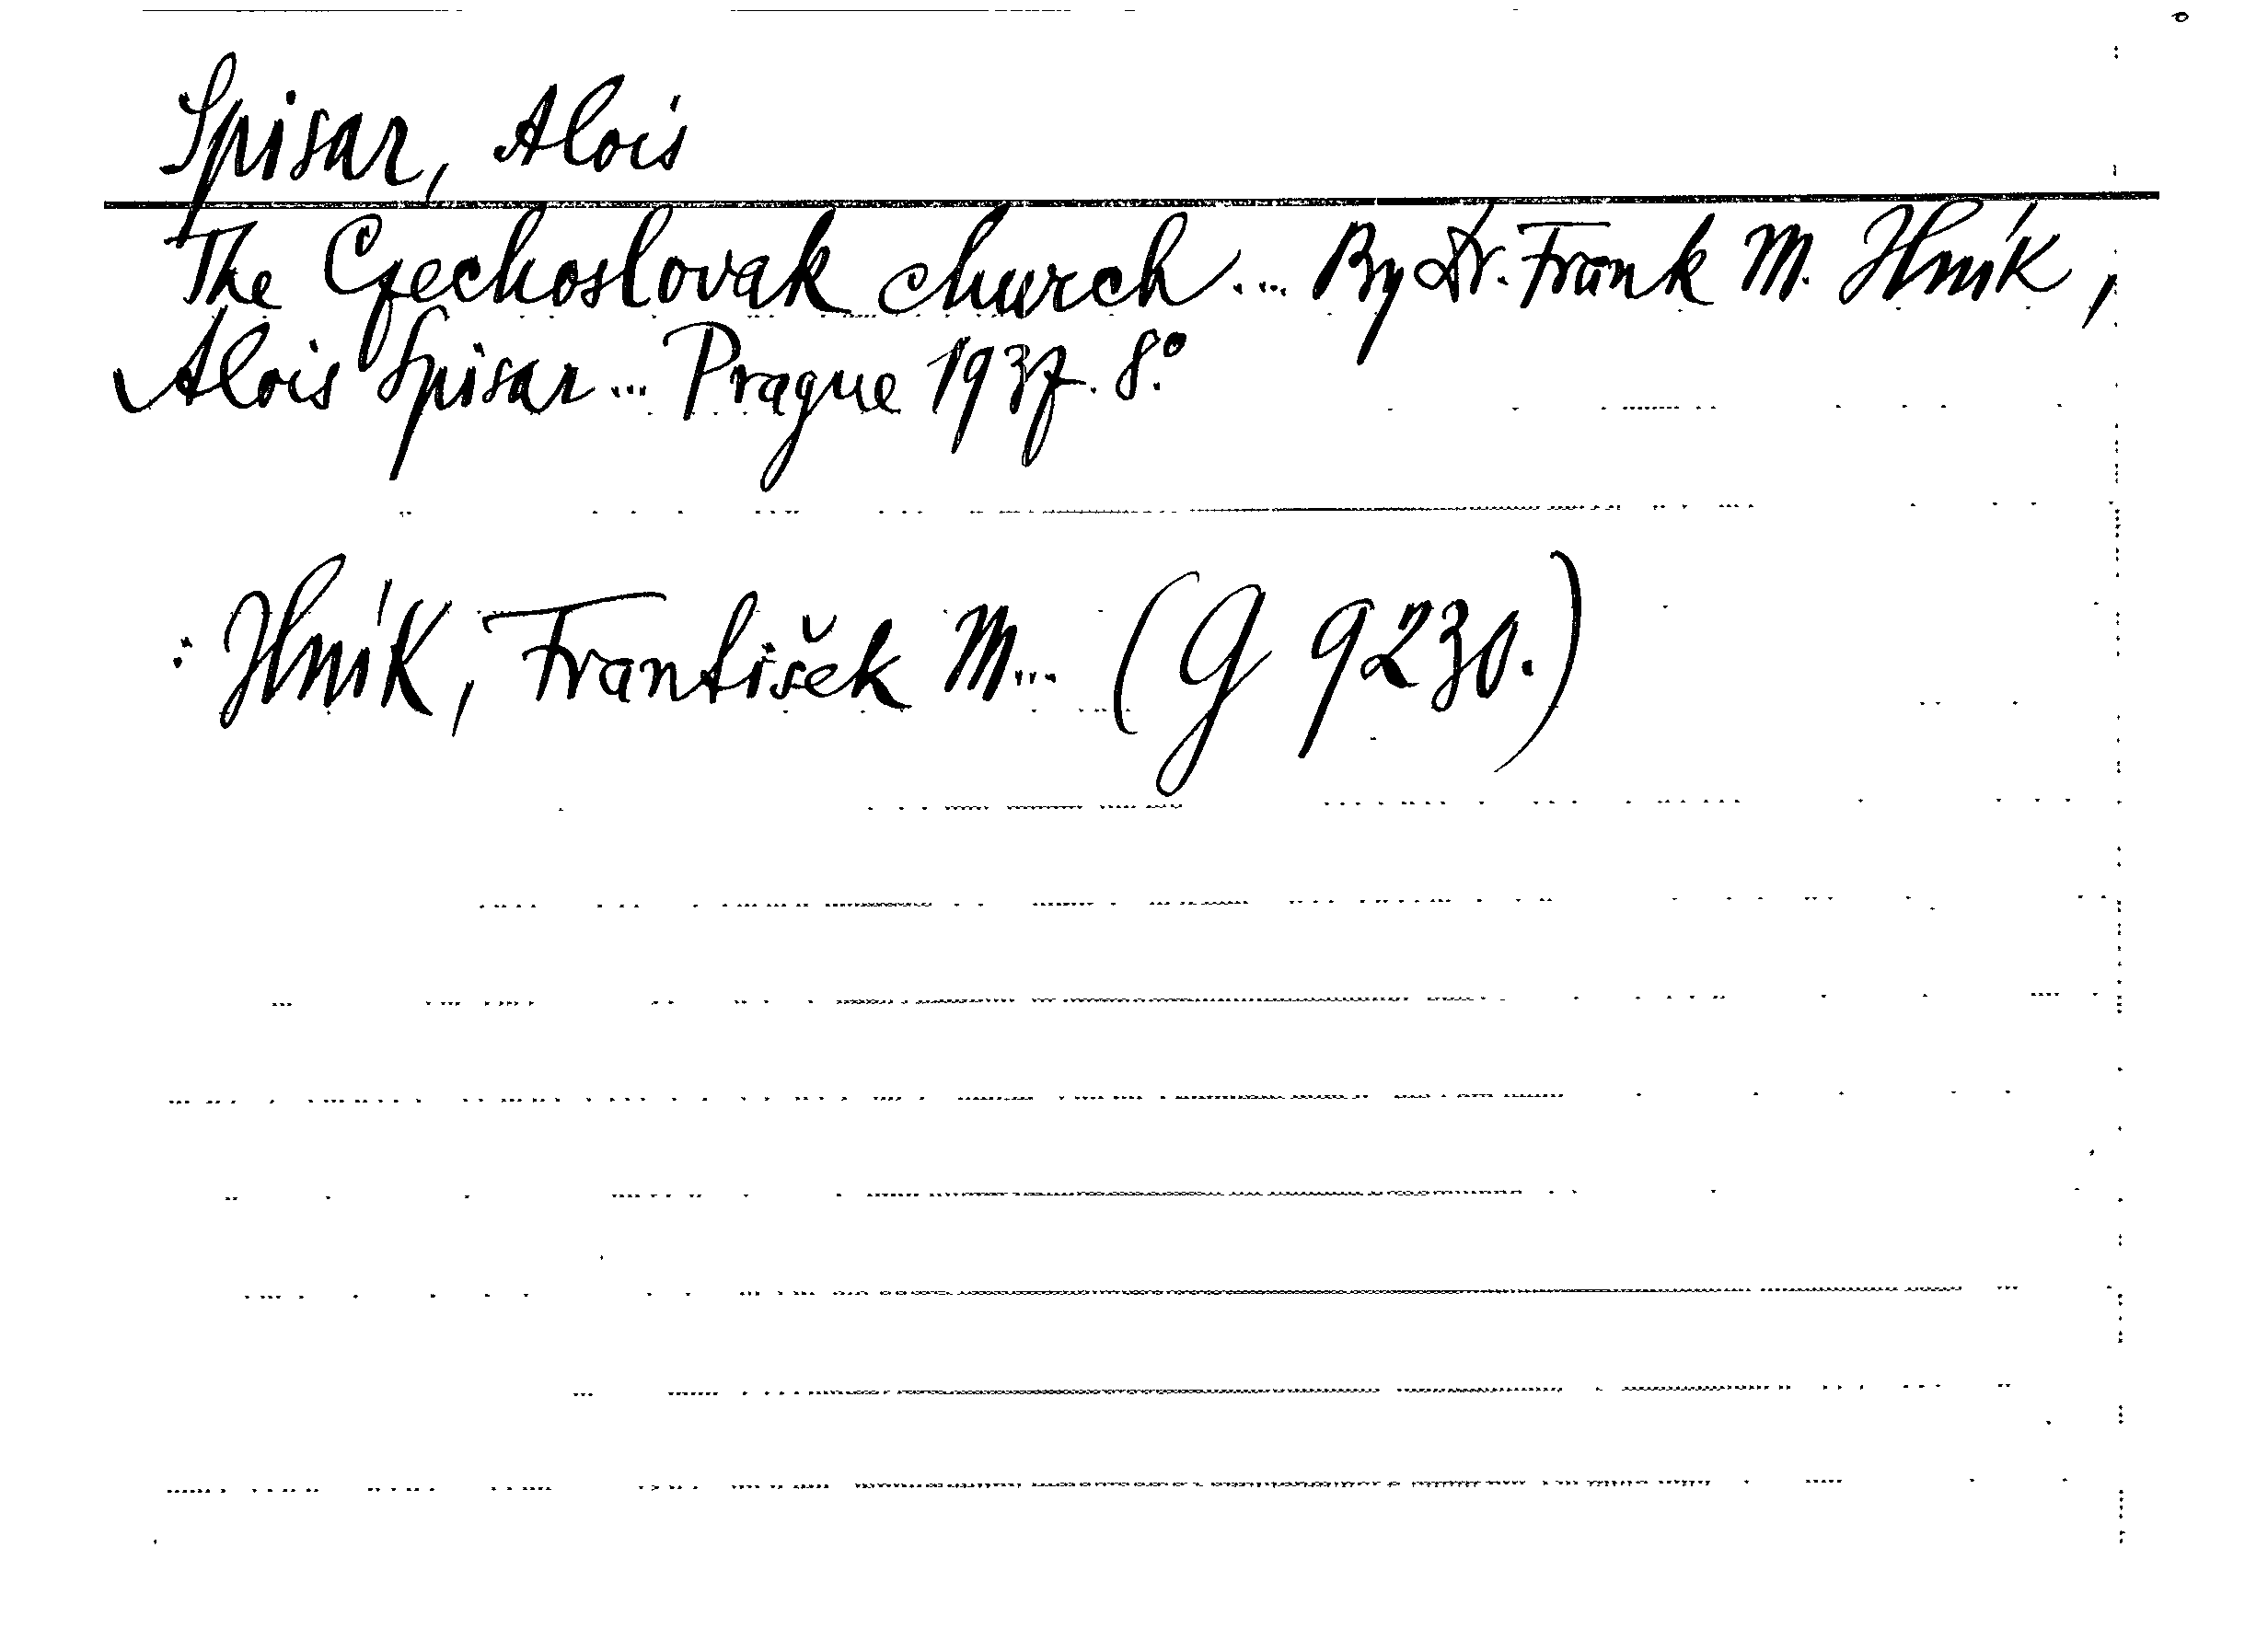 Spisar, Alois
The Czechoslovak church... By Dr. Frank M. Hník,
Alois Spisar... Prague 1937. 8.°
: Hník, František M... (G 9230.)